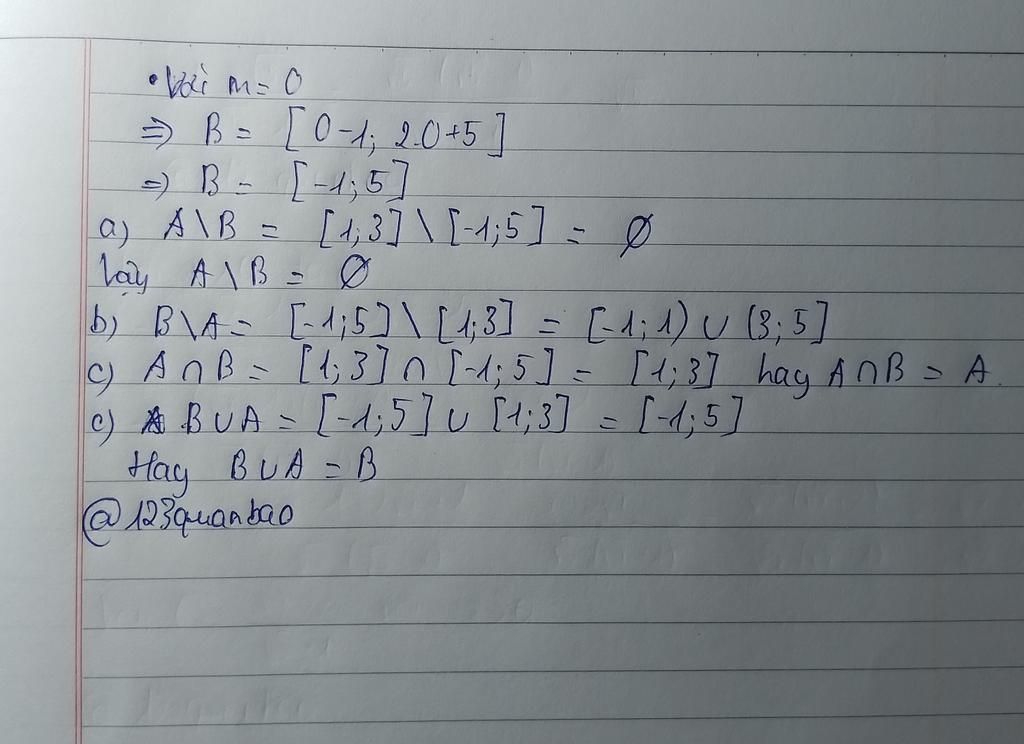 • Với m = 0
⇒ B = [0-1; 2.0+5]
⇒ B = [-1; 5]
a) A \ B = [1; 3] \ [-1; 5] = ∅
Vậy A \ B = ∅
b) B \ A = [-1; 5] \ [1; 3] = [-1; 1) ∪ (3; 5]
c) A ∩ B = [1; 3] ∩ [-1; 5] = [1; 3] hay A ∩ B = A.
c) B ∪ A = [-1; 5] ∪ [1; 3] = [-1; 5]
Hay B ∪ A = B
@123quanbao